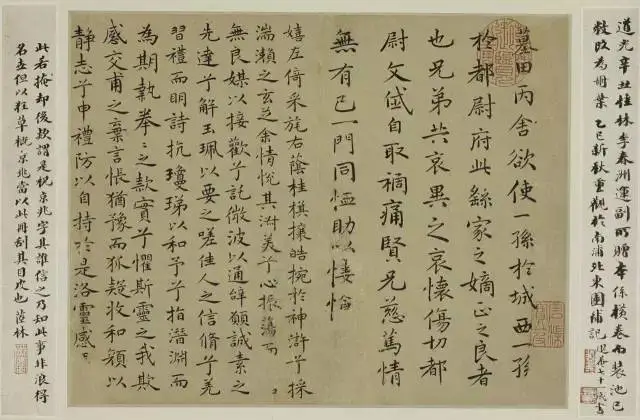 道光辛丑桂林李春洲運副所贈本係橫卷而裝池已
敝改為冊葉乙巳新秋重觀於南浦北東園補記
墓田丙舍欲使一孫於城西一孫
於都尉府此繇家之嫡正之良者
也兄弟共哀異之哀懷傷切都
尉文岱自取禍痛賢兄慈篤情
無有已一門同恤助以悽愴
嬉左倚采旄右蔭桂棋攘皓捥於神滸兮採
湍瀨之玄芝余情悅其淑美兮心振蕩而
無良媒以接歡兮託微波以通辭願誠素之
先達兮解玉珮以要之嗟佳人之信脩兮羌
習禮而明詩抗瓊珶以和予兮指潛淵而
為期執拳〻之款實兮懼斯靈之我欺
感交甫之棄言悵猶豫而狐疑收和顏以
靜志兮申禮防以自持於是洛靈感
此若掩却後款謂是祝京兆字其誰信之乃知此事非浪得
名立但以粗草概京兆當以此冊刮其目皮也 茝林